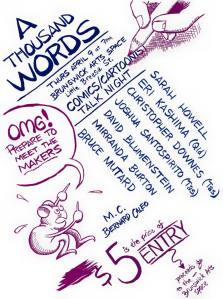 A
THOUSAND
WORDS
THURS APRIL 9 at 7pm
BRUNSWICK ARTS SPACE
Little Breese St.
COMICS/CARTOONS
TALK NIGHT
SARAH HOWELL
ERI KASHIMA (Qld)
CHRISTOPHER DOWNES (Tas)
JOSHUA SANTOSPIRITO (Tas)
DAVID BLUMENSTEIN
MIRRANDA BURTON
BRUCE MUTARD
OMG!
PREPARE TO
MEET THE
MAKERS
M.C.
BERNARD CALEO
$5 is the price of
ENTRY
proceeds go
to the
Brunswick
Arts
Space